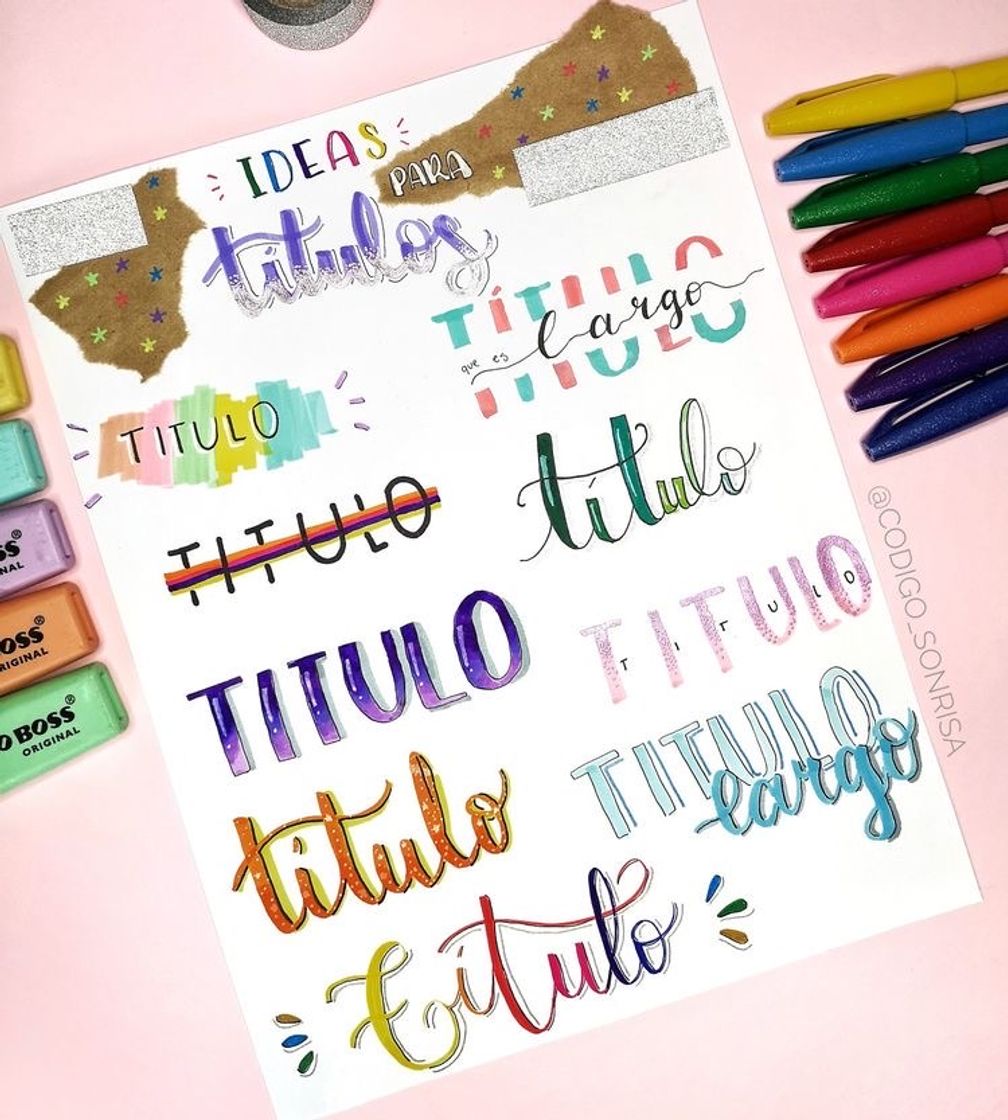 IDEAS
PARA
títulos
TÍTULO
que es largo
TITULO
título
TITULO
TITULO
TITULO
TITULO
TITULO
largo
título
título
@CODIGO_SONRISA
SS®
NAL
OSS®
RIGINAL
O BOSS®
ORIGINAL